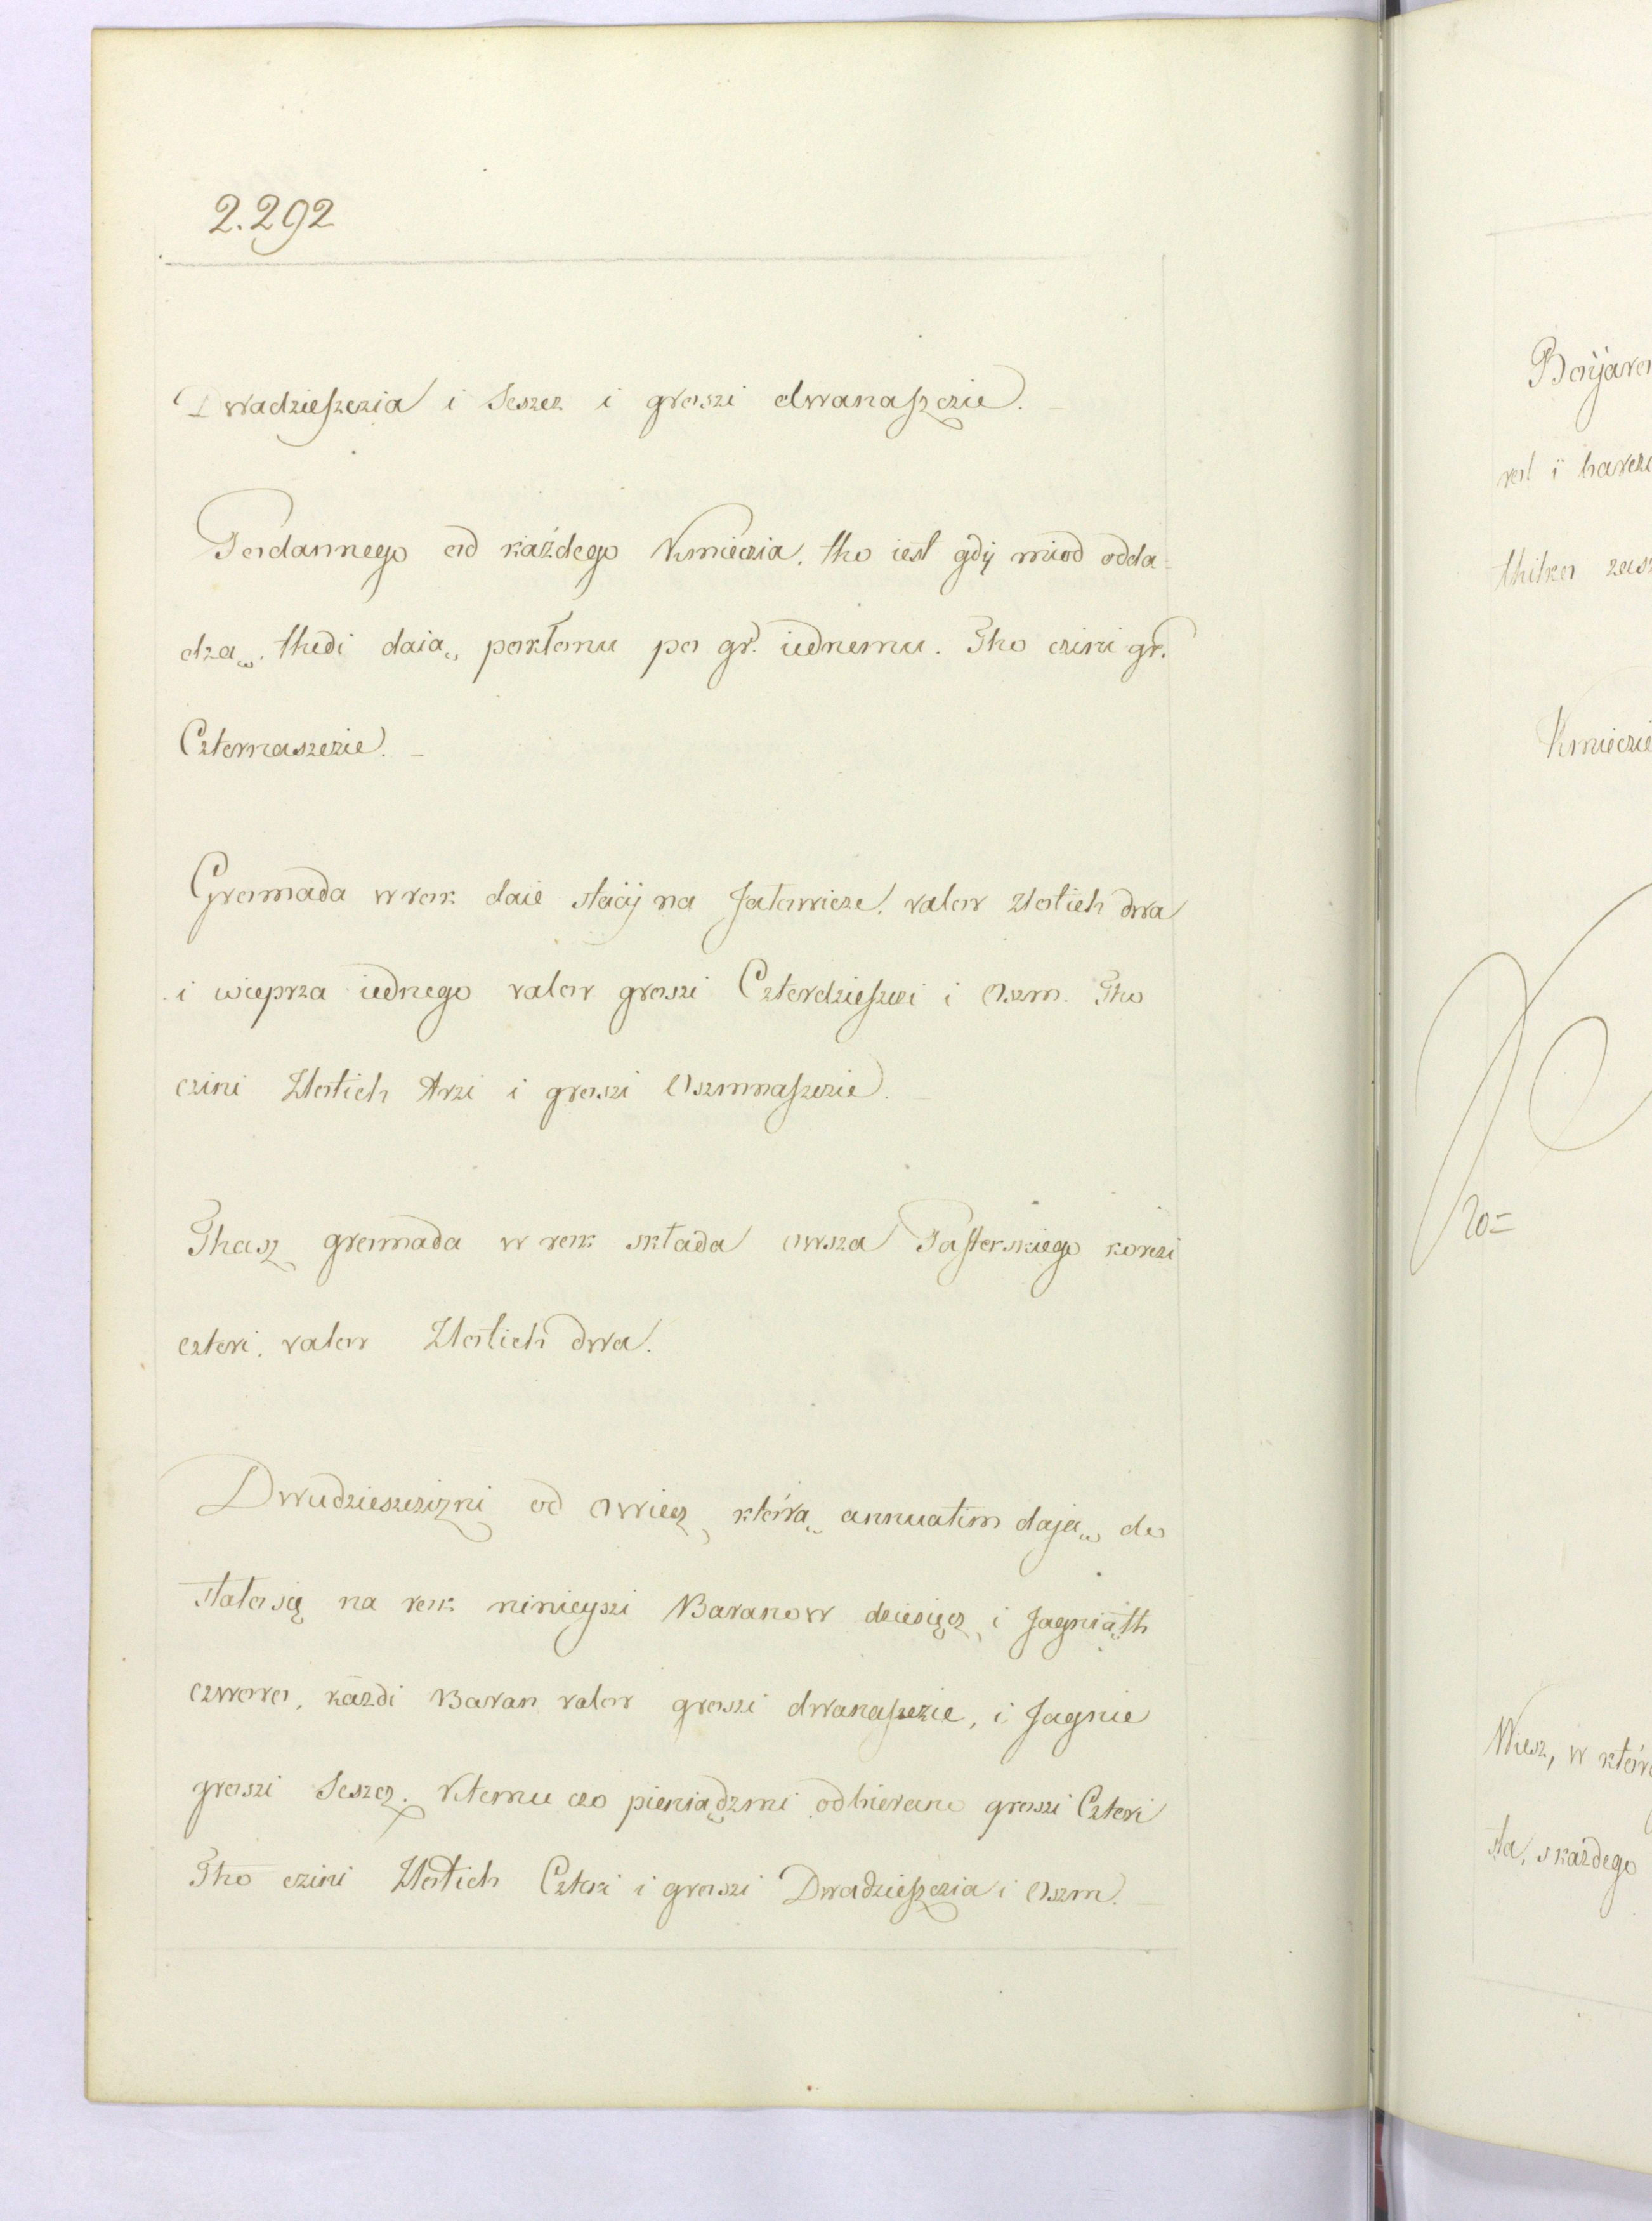 2.292
Dwadzieszczia i Seszcz i groszi dwanaszczie. _
Podannego od każdego Kmieczia, tho iest gdÿ miod odda-
dzą, thedi daią pokłonu po gr. iednemu. Tho czini gr.
Czternaszczie. _
Gromada w rok daie staciÿ na Jałowicze, valor złotich dwa
i wieprza iednego valor groszi Czterdzieszczi i Oszm. Tho
czini Złotich trzi i groszi Oszmnaszczie. _
Thasz gromada w rok składa owsza Pasterskiego korczi
czteri, valor Złotich dwa.
Dwudzieszczizni od owiecz, którą annuatim dają, do
stało się na rok ninieyszi Baranow dziesięcz, i Jagniąth
czworo, każdi Baran valor groszi dwanaszczie, i Jagnie
groszi Seszcz. Ktemu czo pieniądzmi odbierano groszi Czteri
Tho czini Złotich Czteri i groszi Dwadzieszczia i Oszm. _
Boÿaro
rol ï barczi
thilko
Kmieczie
Wiesz, w które
sta, s każdego